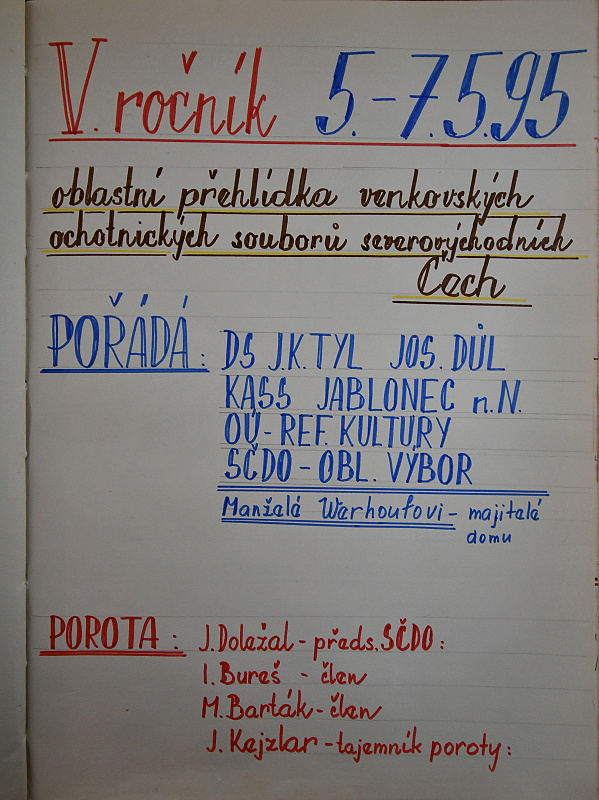 V. ročník 5.-7.5.95
oblastní přehlídka venkovských
ochotnických souborů severovýchodních
Čech
POŘÁDÁ: DS J.K. TYL JOS. DŮL
KASS JABLONEC n.N.
OÚ-REF. KULTURY
SČDO-OBL. VÝBOR
Manželé Werhoufovi - majitelé
domu
POROTA: J. Doležal - předs. SČDO:
I. Bureš - člen
M. Barták - člen
J. Kejzlar - tajemník poroty: